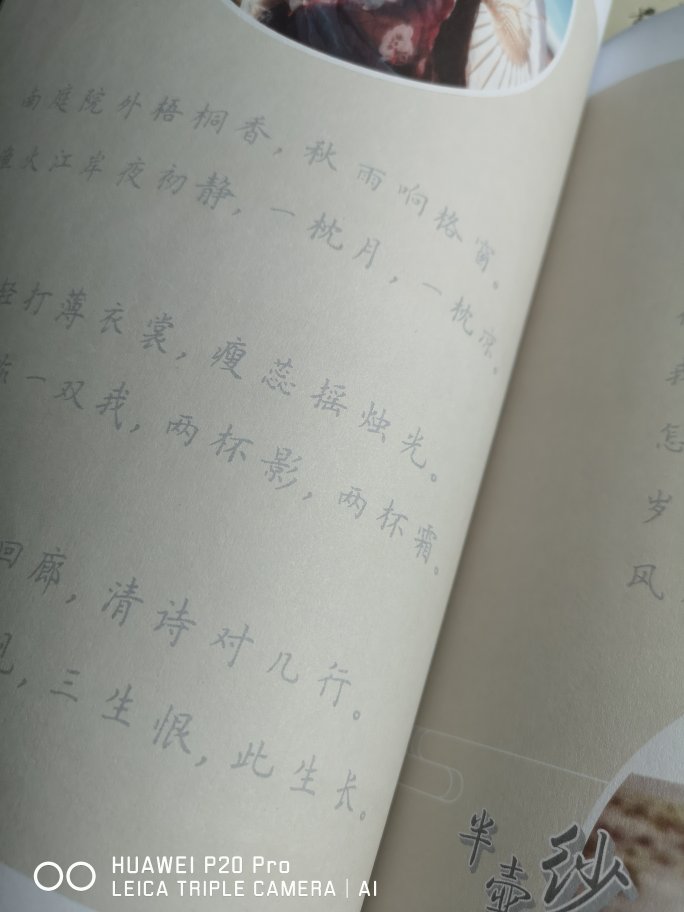 南庭院外梧桐香，秋雨响格窗。
火江岸夜初静，一枕月，一枕凉。
轻打薄衣裳，瘦蕊摇烛光。
一双我，两杯影，两杯霜。
回廊，清诗对几行。
见，三生恨，此生长。
我
怎
岁
风
半壶纱
HUAWEI P20 Pro
LEICA TRIPLE CAMERA | AI